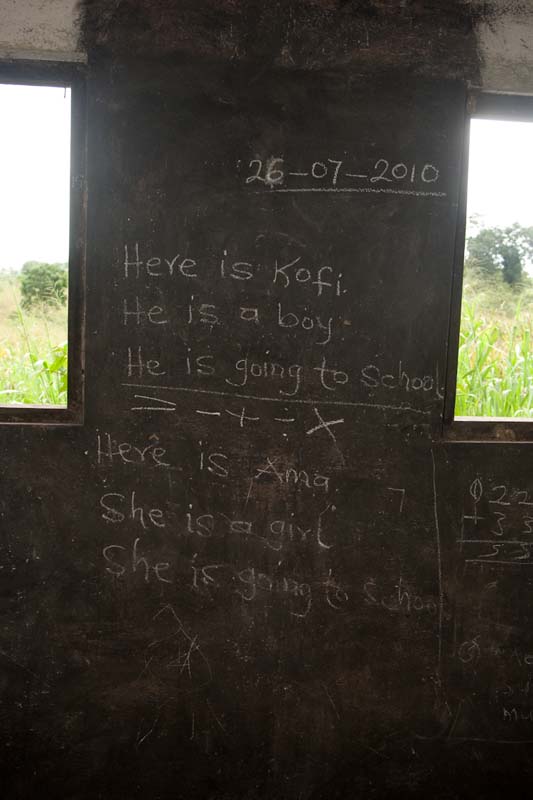 26-07-2010
Here is Kofi.
He is a boy
He is going to school
Here is Ama
She is a girl
She is going to school
22
+ 33